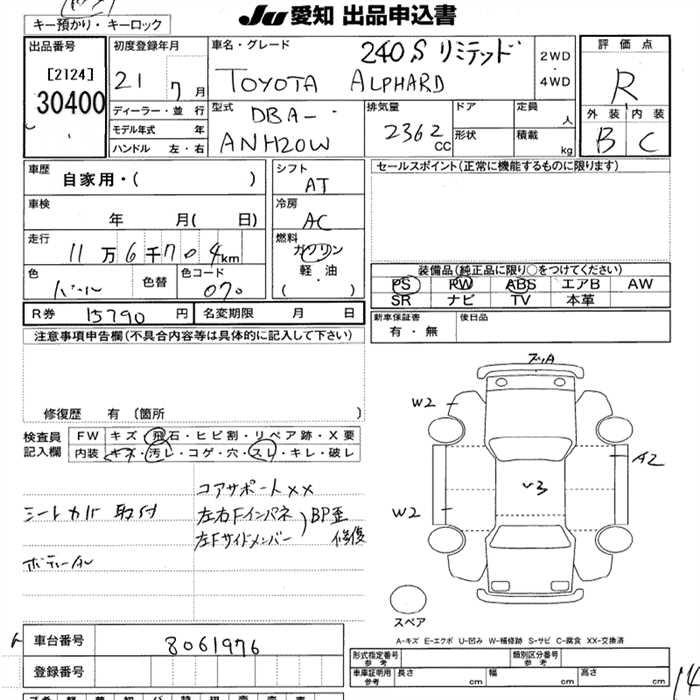 JU 愛知 出品申込書
キー預かり・キーロック
出品番号
[2124]
30400
初度登録年月
21 7月
ディーラー・並 行
モデル年式 年
ハンドル 左・右
車名・グレード
240S リミテッド
TOYOTA ALPHARD
2WD
・
4WD
型式
DBA-
ANH20W
排気量
2362
CC
ドア
形状
定員
人
積載
kg
評価点
R
外装 内装
B C
車歴
自家用・( )
車検
年 月( 日)
走行
11万6千704km
色
パール
色替
色コード
070
シフト
AT
冷房
AC
燃料
ガソリン
軽・油
( )
セールスポイント(正常に機能するものに限ります)
装備品(純正品に限り○をつけてください)
PS PW ABS エアB AW
SR ナビ TV 本革
R券 15790円
名変期限 月 日
新車保証書
有・無
後日品
注意事項申告欄(不具合内容等は具体的に記入して下さい)
修復歴 有 〔箇所 〕
検査員
記入欄
FW キズ・飛石・ヒビ割・リペア跡・X要
内装 キズ・汚レ・コゲ・穴・スレ・キレ・破レ
コアサポートXX
シートカバー取付
左右Fインパネ
左Fサイドメンバー
BP歪
修復
W2
A2
W2
V3
スペア
A-キズ E-エクボ U-凹み W-補修跡 S-サビ C-腐食 XX-交換済
車台番号
8061976
登録番号
形式指定番号
参考
類別区分番号
参考
車庫証明用
参考
長さ cm
幅 cm
高さ cm
14